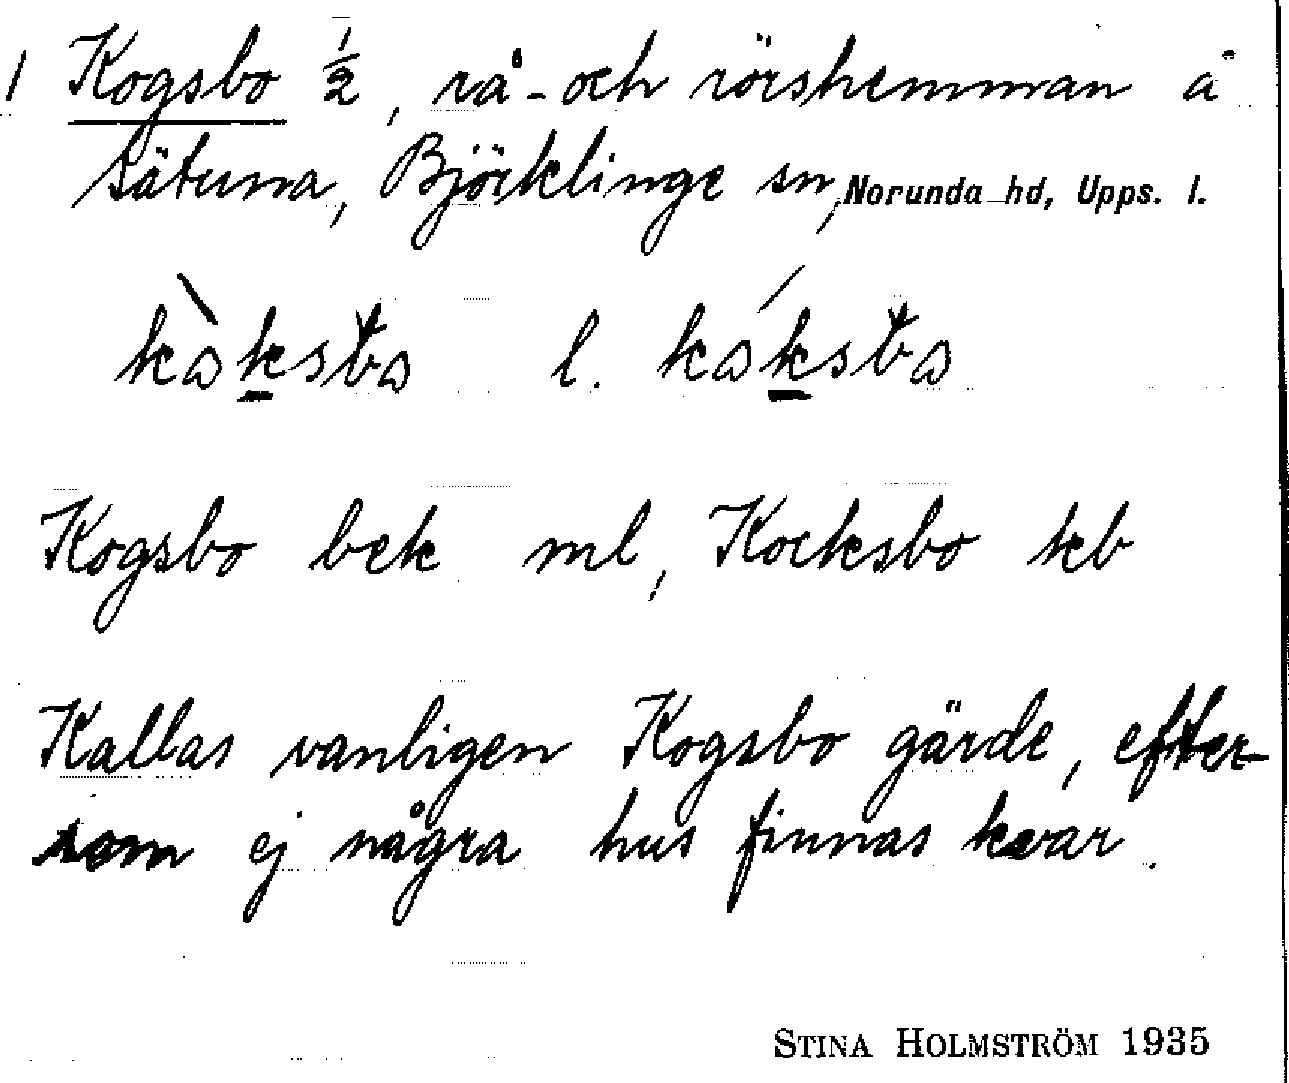 1 Kogsbo ½, rå- och rörshemman å
Sätuna, Björklinge sn, Norunda hd, Upps. l.
kàksba l. káksba
Kogsbo bek ml, Kocksbo kb
Kallas vanligen Kogsbo gärde, efter-
som ej några hus finnas kvar.
STINA HOLMSTRÖM 1935